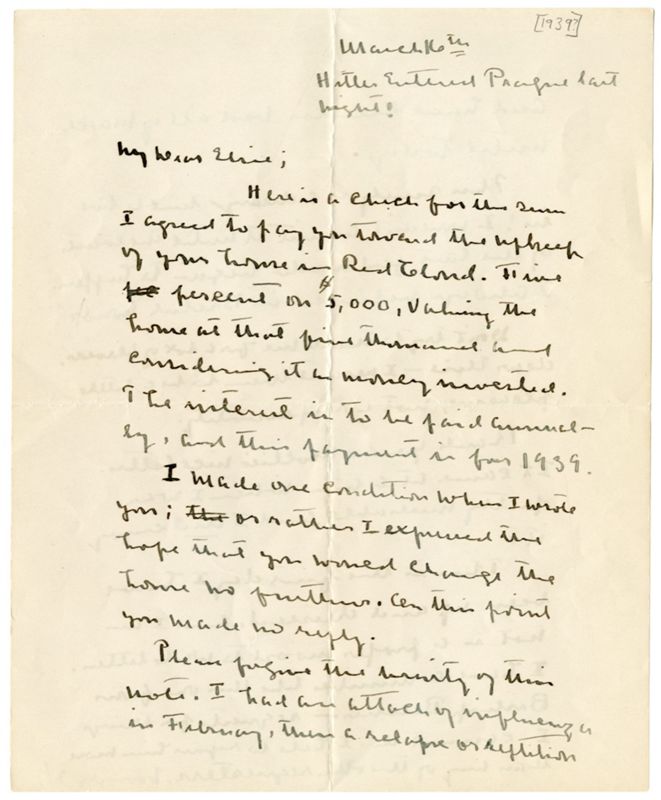 [1939?]
March 16th
Hitler Entered Prague last
night!
My Dear Elsie;
Here is a check for the sum
I agreed to pay you toward the upkeep
of your house in Red Cloud. Five
per percent on $5,000, valuing the
house at that five thousand and
considering it as money invested.
The interest is to be paid annual-
ly, and this payment is for 1939.
I made one condition when I wrote
you; the or rather I expressed the
hope that you would change the
house no further. On this point
you made no reply.
Please forgive the brevity of this
note. I had an attack of influenza
in February, then a relapse or repitition